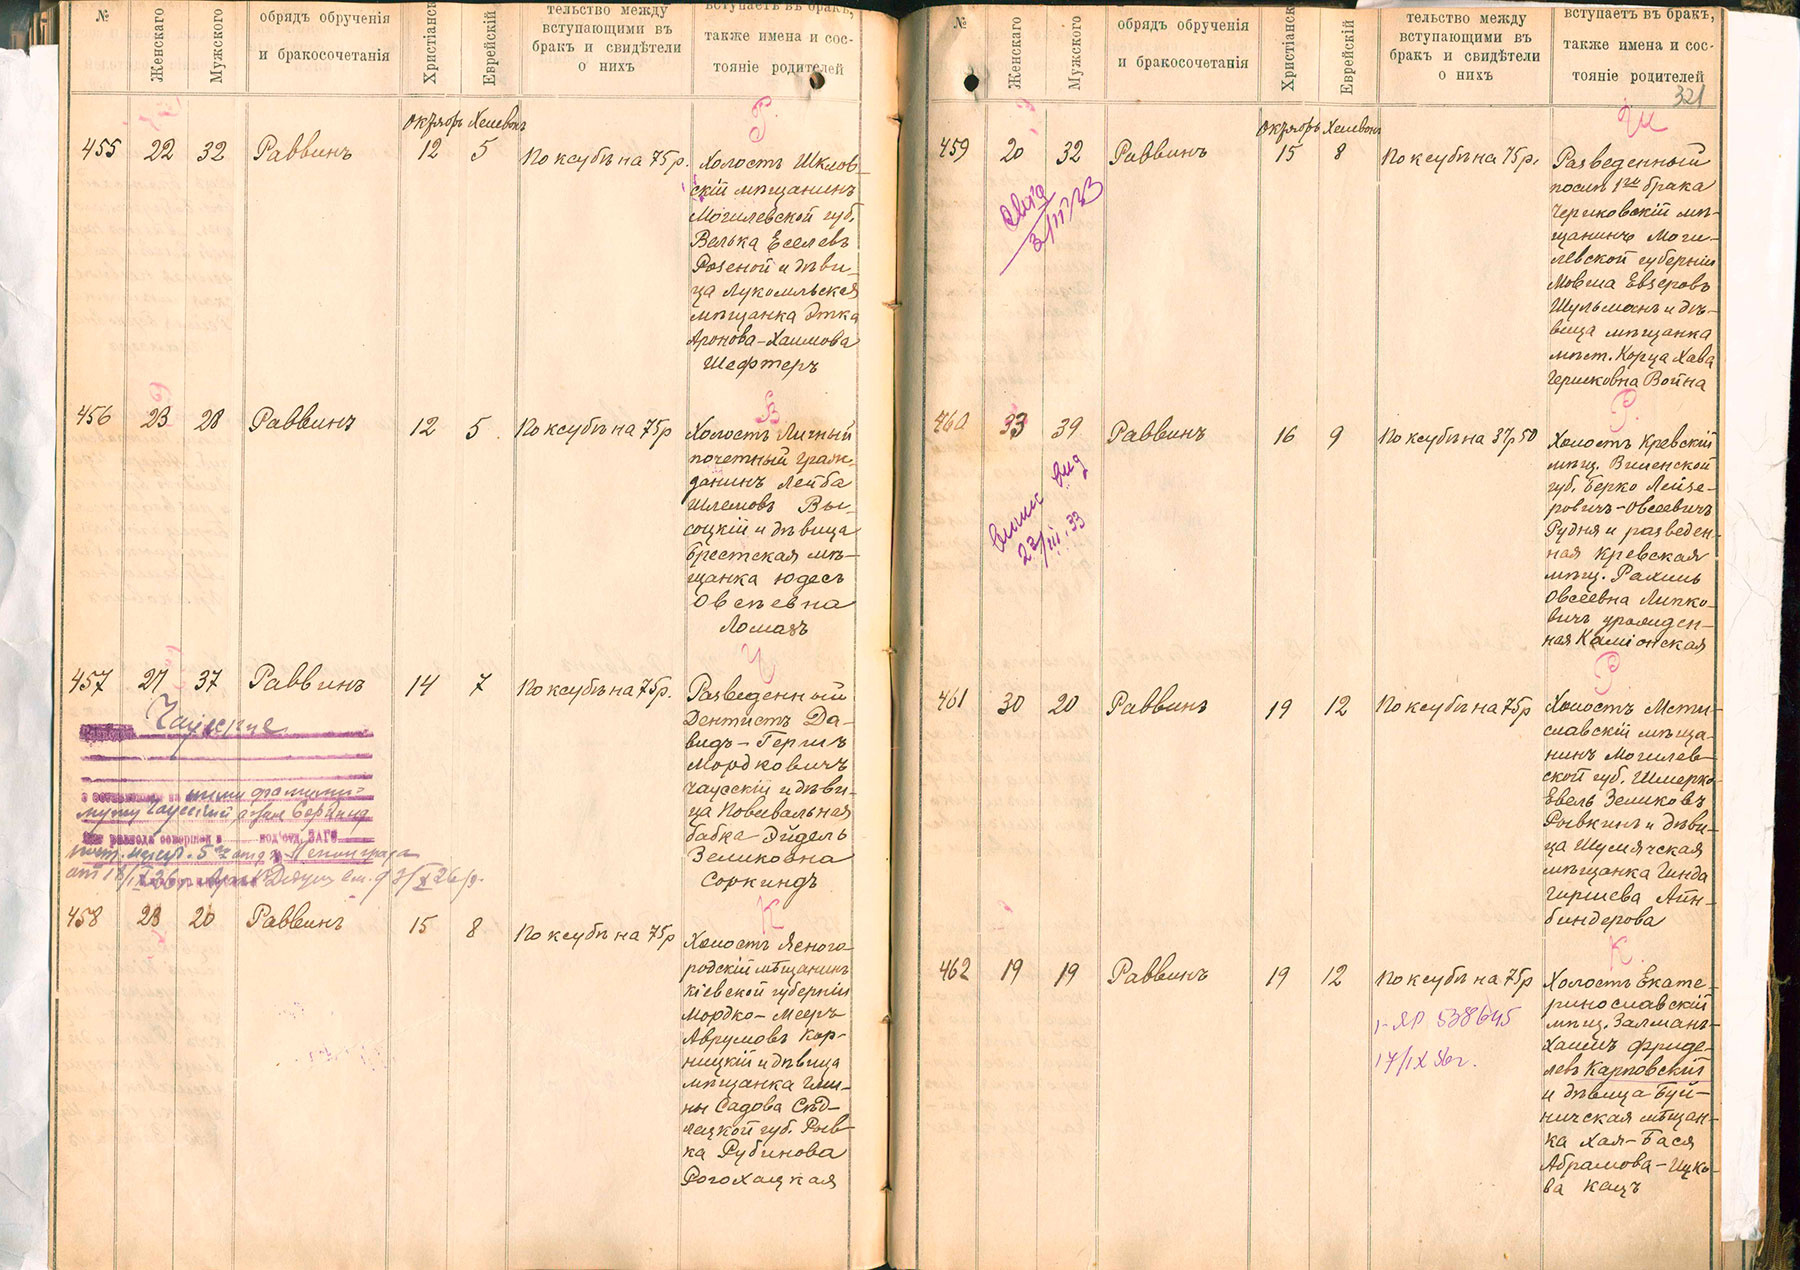 №
Женскаго
Мужского
обрядъ обрученія
и бракосочетанія
Христіанск
Еврейскій
тельство между
вступающими въ
бракъ и свидѣтели
о нихъ
вступаетъ въ бракъ,
также имена и сос-
тояніе родителей
Октябрь Хешвонъ
455 22 32 Раввинъ 12 5 По ксубѣ на 75 р.
Холостъ Шклов-
скій мѣщанинъ
Могилевской губ.
Велька Еселевъ
Розеной и дѣви-
ца Лукомльская
мѣщанка Этка
Аронова-Хаимова
Шефтеръ
456 23 28 Раввинъ 12 5 По ксубѣ на 75 р
Холостъ Личный
почетный граж-
данинъ Лейба
Шлемовъ Вы-
соцкій и дѣвица
Брестская мѣ-
щанка Юдесъ
Овсѣевна
Ломазъ
457 27 37 Раввинъ 14 7 По ксубѣ на 75 р.
Разведенный
Дентистъ Да-
видъ-Гершъ
Мордковичъ
Чаусскій и дѣви-
ца Повивальная
бабка Эйдель
Зеликовна
Соркиндъ
Чаусские
458 23 20 Раввинъ 15 8 По ксубѣ на 75 р
К
Холостъ Ясного-
родскій мѣщанинъ
Кіевской губерніи
Мордко-Мееръ
Аврумовъ Кор-
ницкій и дѣвица
мѣщанка Гми-
ны Садова Сѣд-
лецкой губ. Рыв-
ка Рубинова
Рогохацкая
№
Женскаго
Мужского
обрядъ обрученія
и бракосочетанія
Христіанск
Еврейскій
тельство между
вступающими въ
бракъ и свидѣтели
о нихъ
вступаетъ въ бракъ,
также имена и сос-
тояніе родителей
321
Октябрь Хешвонъ
459 20 32 Раввинъ 15 8 По ксубѣ на 75 р.
Ш
Разведенный
послѣ 1го брака
Чериковскій мѣ-
щанинъ Моги-
левской губерніи
Мовша Евзеровъ
Шульманъ и дѣ-
вица мѣщанка
мѣст. Корца Хава
Гершковна Война
460 33 39 Раввинъ 16 9 По ксубѣ на 37 р 50
Р
Холостъ Кревскій
мѣщ. Виленской
губ. Берко Лейзе-
ровичъ-Овсеевичъ
Рудня и разведен-
ная Кревская
мѣщ. Рахиль
Овсеевна Липко-
вичъ урожден-
ная Каміонская
23/III.33
461 30 20 Раввинъ 19 12 По ксубѣ на 75 р
Р
Холостъ Мсти-
славскій мѣща-
нинъ Могилев-
ской губ. Шмерко-
Евель Зеликовъ
Рывкинъ и дѣви-
ца Шумячская
мѣщанка Гинда
Гиршева Айн-
биндерова
462 19 19 Раввинъ 19 12 По ксубѣ на 75 р
К
Холостъ Екате-
ринославскій
мѣщ. Залманъ-
Хаимъ Фриде-
левъ Карповскій
и дѣвица Буй-
ничская мѣщан-
ка Хая-Бася
Абрамова-Ицко-
ва Кацъ
I-ЯР 538645
17/IX 56г.